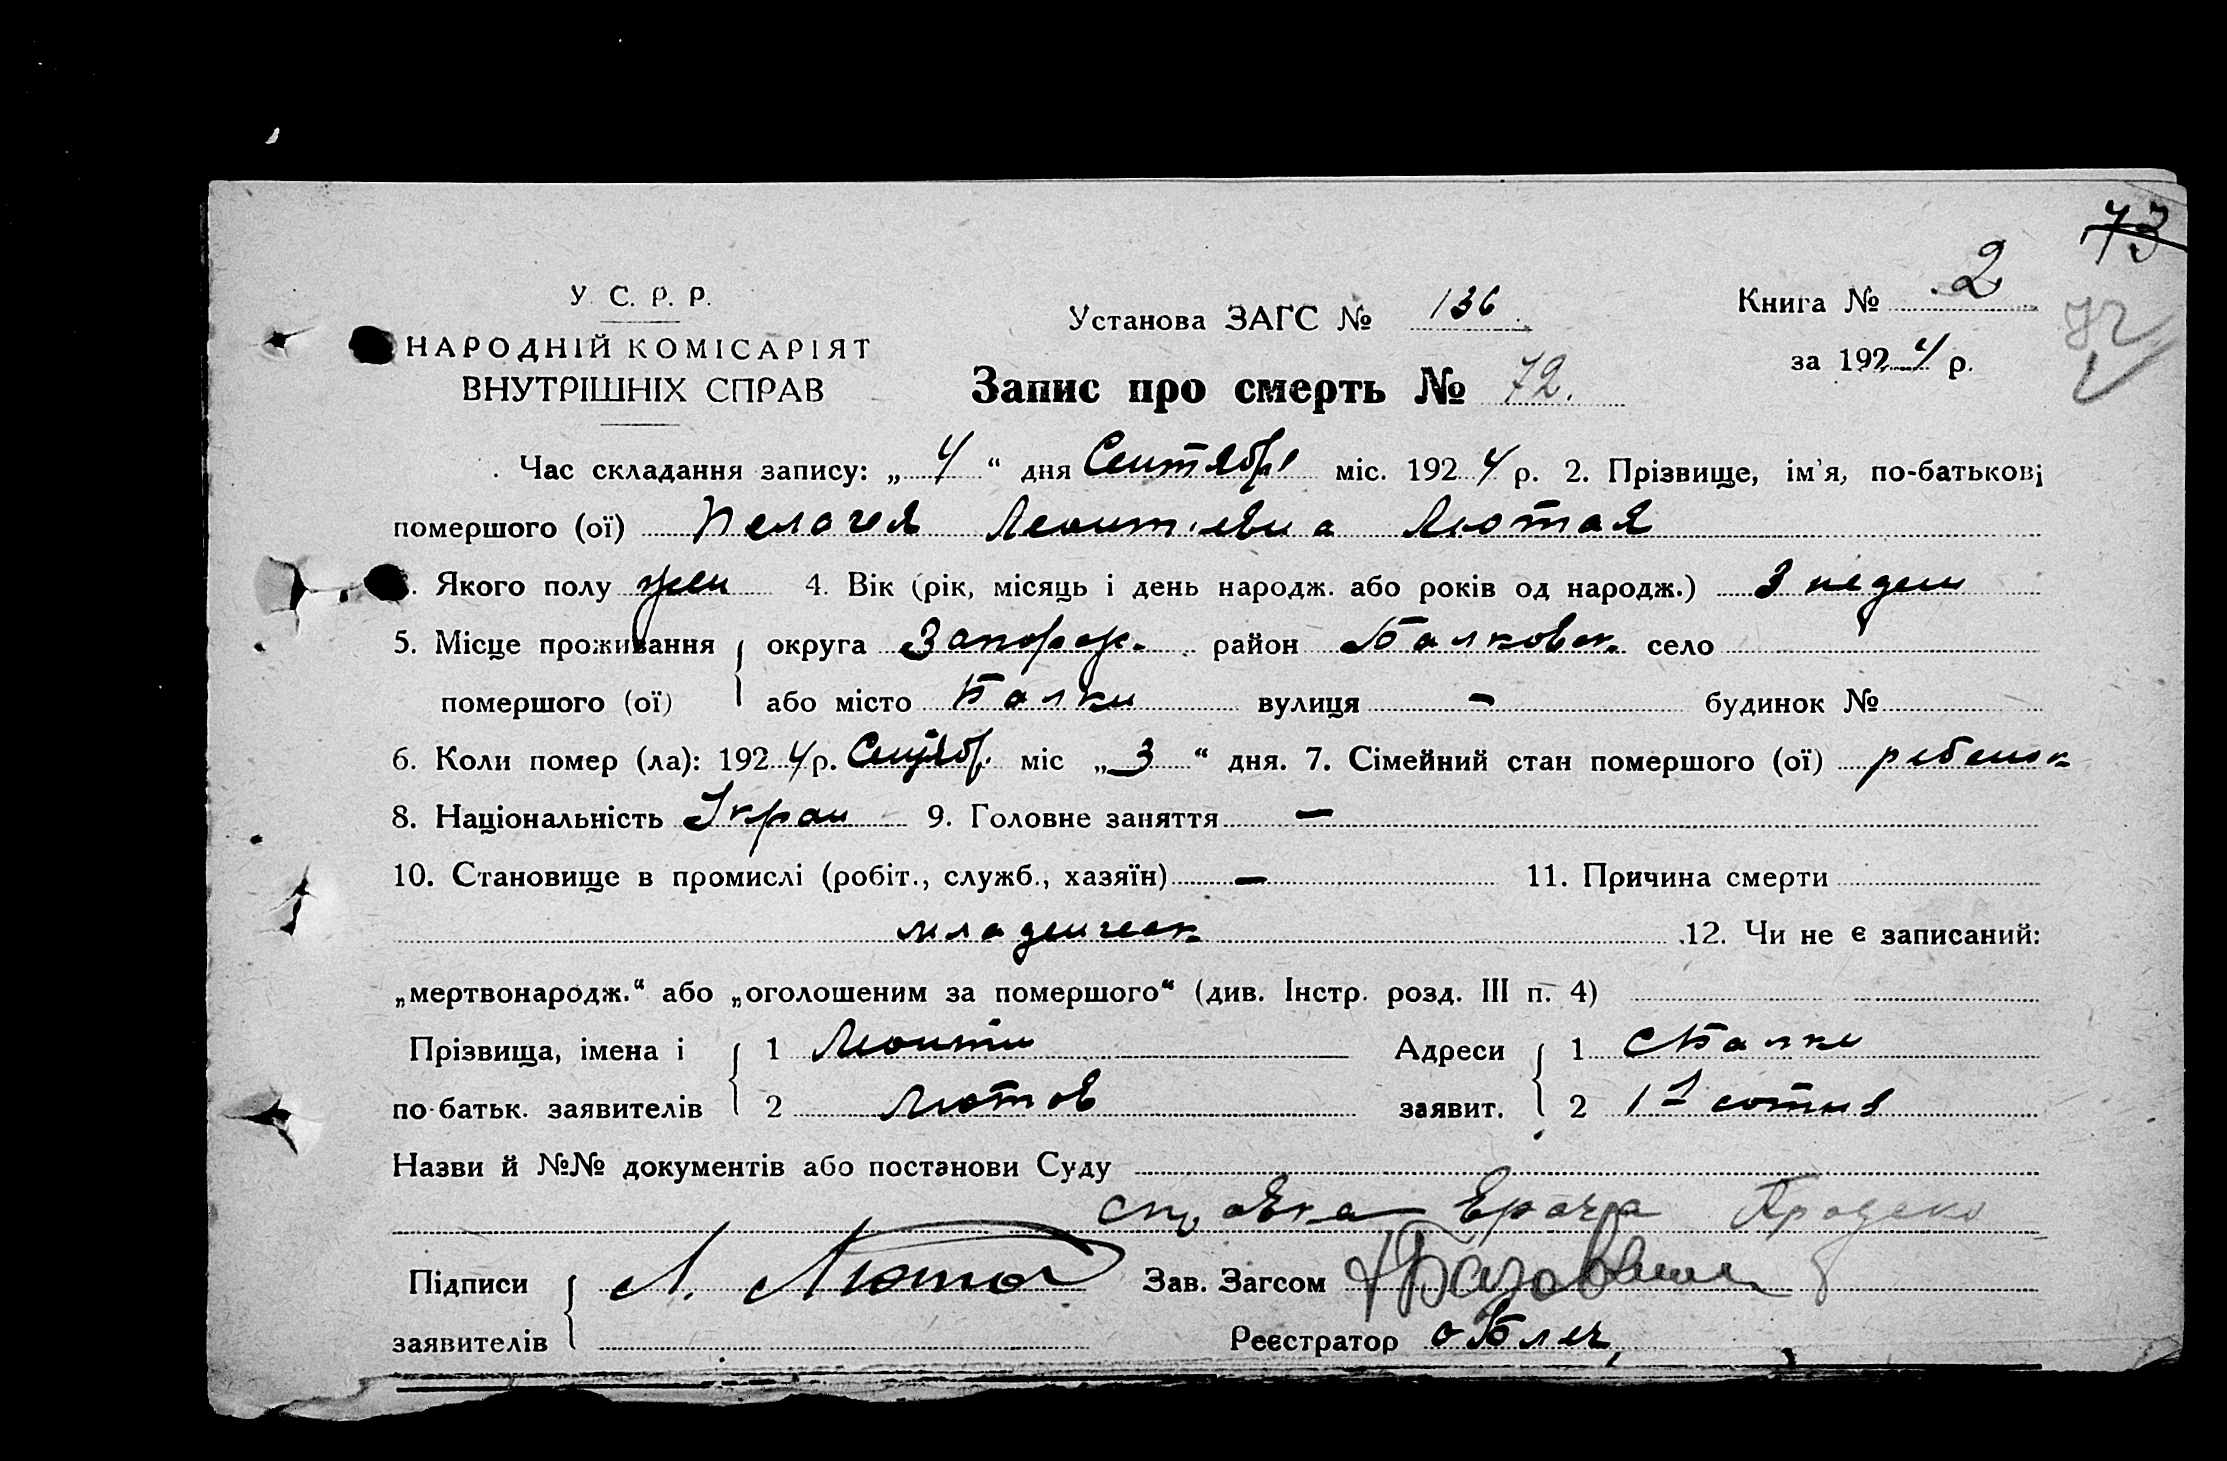 73
У. С. Р. Р.
НАРОДНІЙ КОМІСАРІЯТ
ВНУТРІШНІХ СПРАВ
Установа ЗАГС № 136
Книга № 2
за 1924 р.
72
Запис про смерть № 72.
Час складання запису: „4“ дня Сентября міс. 1924 р. 2. Прізвище, ім’я, по-батькові
помершого (ої) Пелагея Леонтиевна Лютая
3. Якого полу жен 4. Вік (рік, місяць і день народж. або років од народж.) 3 недели
5. Місце проживання округа Запорож. район Балковск. село
помершого (ої) або місто Балки вулиця – будинок №
6. Коли помер (ла): 1924 р. Сентябр. міс „3“ дня. 7. Сімейний стан помершого (ої) ребенок
8. Національність Украи 9. Головне заняття –
10. Становище в промислі (робіт., служб., хазяїн) – 11. Причина смерти
младенческ 12. Чи не є записаний:
„мертвонародж.“ або „оголошеним за помершого“ (див. Інстр. розд. III п. 4)
Прізвища, імена і 1 Леонтий Адреси 1 с Балки
по-батьк. заявителів 2 Лютов заявит. 2 1я сотня
Назви й №№ документів або постанови Суду
справка врача
Підписи Л. Лютов Зав. Загсом
заявителів Реєстратор